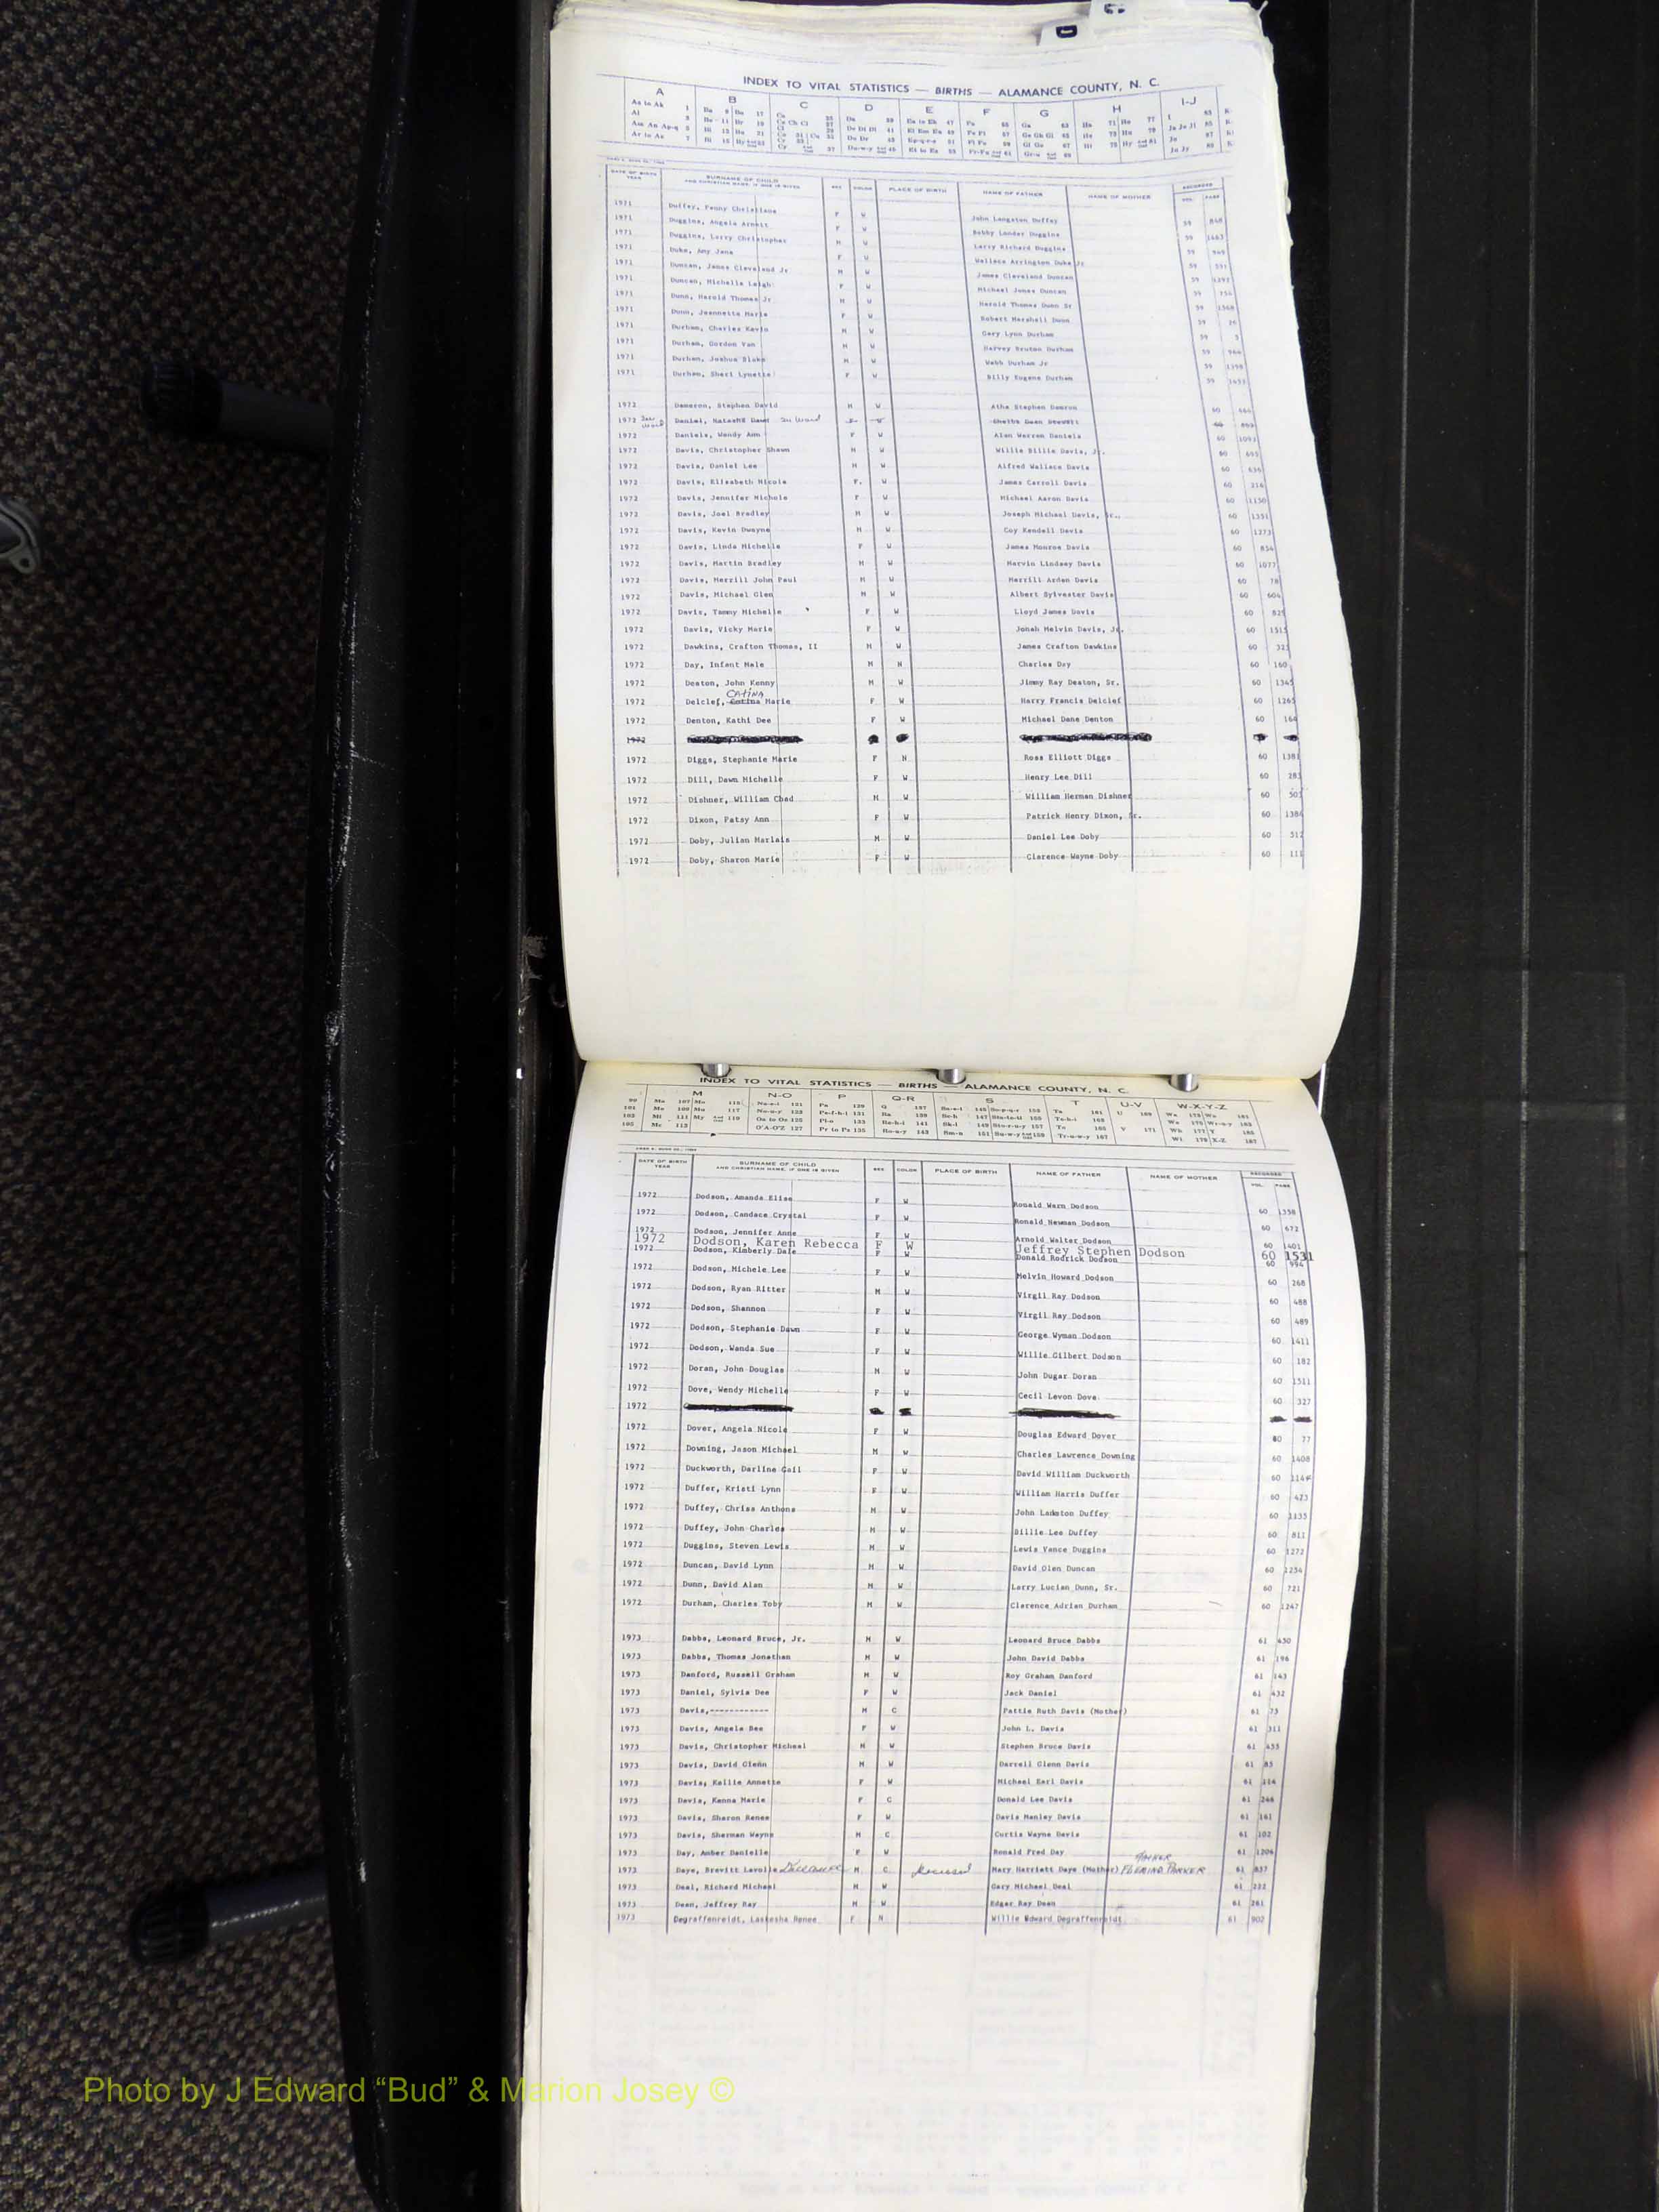 D
INDEX TO VITAL STATISTICS — BIRTHS — ALAMANCE COUNTY, N. C.
A B C D E F G H I-J
DATE OF BIRTH YEAR SURNAME OF CHILD AND CHRISTIAN NAME, IF ONE IS GIVEN SEX COLOR PLACE OF BIRTH NAME OF FATHER NAME OF MOTHER RECORDED VOL. PAGE
1971 Duffey, Penny Christiana F W John Langston Duffey 59 848
1971 Duggins, Angela Arnett F W Bobby Lander Duggins 59 1463
1971 Duggins, Larry Christopher M W Larry Richard Duggins 59 949
1971 Duke, Amy Jane F W Wallace Arrington Duke Jr 59
1971 Duncan, James Cleveland Jr M W James Cleveland Duncan 59
1971 Duncan, Michelle Leigh F W Michael James Duncan 59
1971 Dunn, Harold Thomas Jr M W Harold Thomas Dunn Sr 59 1568
1971 Dunn, Jeannetta Marie F W Robert Marshall Dunn 59
1971 Durham, Charles Kevin M W Gary Lynn Durham 59
1971 Durham, Gordon Van M W Harvey Bruton Durham 59
1971 Durham, Joshua Blake M W Webb Durham Jr 59 1398
1971 Durham, Sheri Lynette F W Billy Eugene Durham 59 1453
1972 Dameron, Stephen David M W Atha Stephen Damron 60
1972 See Ward Daniel, Natashe Dawn See Ward F
1972 Daniels, Wendy Ann F W Alan Warren Daniels 60 1093
1972 Davis, Christopher Shawn M W Willie Billie Davis, Jr. 60 695
1972 Davis, Daniel Lee M W Alfred Wallace Davis 60 636
1972 Davis, Elisabeth Nicole F. W James Carroll Davis 60 216
1972 Davis, Jennifer Nichole F W Michael Aaron Davis 60 1150
1972 Davis, Joel Bradley M W Joseph Michael Davis, Sr. 60 1351
1972 Davis, Kevin Dwayne M W Coy Kendall Davis 60 1273
1972 Davis, Linda Michelle F W James Monroe Davis 60 854
1972 Davis, Martin Bradley M W Marvin Lindsey Davis 60 1077
1972 Davis, Merrill John Paul M W Merrill Arden Davis 60 78
1972 Davis, Michael Glen M W Albert Sylvester Davis 60 604
1972 Davis, Tammy Michelle F W Lloyd James Davis 60 825
1972 Davis, Vicky Marie F W Jonah Melvin Davis, Jr. 60 1515
1972 Dawkins, Crafton Thomas, II M W James Crafton Dawkins 60 323
1972 Day, Infant Male M N Charles Day 60 160
1972 Deaton, John Kenny M W Jimmy Ray Deaton, Sr. 60 1345
CATINA
1972 Delclef, Marie F W Harry Francis Delclef 60 1265
1972 Denton, Kathi Dee F W Michael Dane Denton 60 164
1972
1972 Diggs, Stephanie Marie F N Ross Elliott Diggs 60 1381
1972 Dill, Dawn Michelle F W Henry Lee Dill 60 283
1972 Dishner, William Chad M W William Herman Dishner 60 505
1972 Dixon, Patsy Ann F W Patrick Henry Dixon, Sr. 60 1386
1972 Doby, Julian Marlais M W Daniel Lee Doby 60 512
1972 Doby, Sharon Marie F W Clarence Wayne Doby 60 111
INDEX TO VITAL STATISTICS — BIRTHS — ALAMANCE COUNTY, N. C.
M N-O P Q-R S T U-V W-X-Y-Z
DATE OF BIRTH YEAR SURNAME OF CHILD AND CHRISTIAN NAME, IF ONE IS GIVEN SEX COLOR PLACE OF BIRTH NAME OF FATHER NAME OF MOTHER RECORDED VOL. PAGE
1972 Dodson, Amanda Elise F W Ronald Warn Dodson 60 1358
1972 Dodson, Candace Crystal F W Ronald Newman Dodson 60 672
1972 Dodson, Jennifer Anne F W Arnold Walter Dodson 60 1401
1972 Dodson, Karen Rebecca F W Jeffrey Stephen Dodson 60 1531
1972 Dodson, Kimberly Dale F W Donald Rodrick Dodson 60 994
1972 Dodson, Michele Lee F W Melvin Howard Dodson 60 268
1972 Dodson, Ryan Ritter M W Virgil Ray Dodson 60 488
1972 Dodson, Shannon F W Virgil Ray Dodson 60 489
1972 Dodson, Stephanie Dawn F W George Wyman Dodson 60 1411
1972 Dodson, Wanda Sue F W Willie Gilbert Dodson 60 182
1972 Doran, John Douglas M W John Dugar Doran 60 1511
1972 Dove, Wendy Michelle F W Cecil Levon Dove 60 327
1972
1972 Dover, Angela Nicole F W Douglas Edward Dover 60 77
1972 Downing, Jason Michael M W Charles Lawrence Downing 60 1408
1972 Duckworth, Darline Gail F W David William Duckworth 60 1146
1972 Duffer, Kristi Lynn F W William Harris Duffer 60 423
1972 Duffey, Chriss Anthons M W John Lankston Duffey 60 1135
1972 Duffey, John Charles M W Billie Lee Duffey 60 811
1972 Duggins, Steven Lewis M W Lewis Vance Duggins 60 1272
1972 Duncan, David Lynn M W David Olen Duncan 60 1254
1972 Dunn, David Alan M W Larry Lucian Dunn, Sr. 60 721
1972 Durham, Charles Toby M W Clarence Adrien Durham 60 1247
1973 Dabbs, Leonard Bruce, Jr. M W Leonard Bruce Dabbs 61 450
1973 Dabbs, Thomas Jonathan M W John David Dabbs 61 196
1973 Danford, Russell Graham M W Roy Graham Danford 61 143
1973 Daniel, Sylvia Dee F W Jack Daniel 61 432
1973 Davis,------------ M C Pattie Ruth Davis (Mother) 61 73
1973 Davis, Angela Bee F W John L. Davis 61 311
1973 Davis, Christopher Micheal M W Stephen Bruce Davis 61 455
1973 Davis, David Glenn M W Darrell Glenn Davis 61 85
1973 Davis, Kellie Annette F W Michael Earl Davis 61 114
1973 Davis, Kenna Marie F C Donald Lee Davis 61 246
1973 Davis, Sharon Renee F W Davis Manley Davis 61 161
1973 Davis, Sherman Wayne M C Curtis Wayne Davis 61 102
1973 Day, Amber Danielle F W Ronald Fred Day 61 1206
1973 Daye, Brevitt Lavelle M C Mary Harriett Daye (Mother) FLEMIND PARKER 61 837
1973 Deal, Richard Michael M W Gary Michael Deal 61 222
1973 Dean, Jeffrey Ray M W Edgar Ray Dean 61 261
1973 Degraffenreidt, Laskesha Renee F N Willie Edward Degraffenreidt 61 902
Photo by J Edward “Bud” & Marion Josey ©